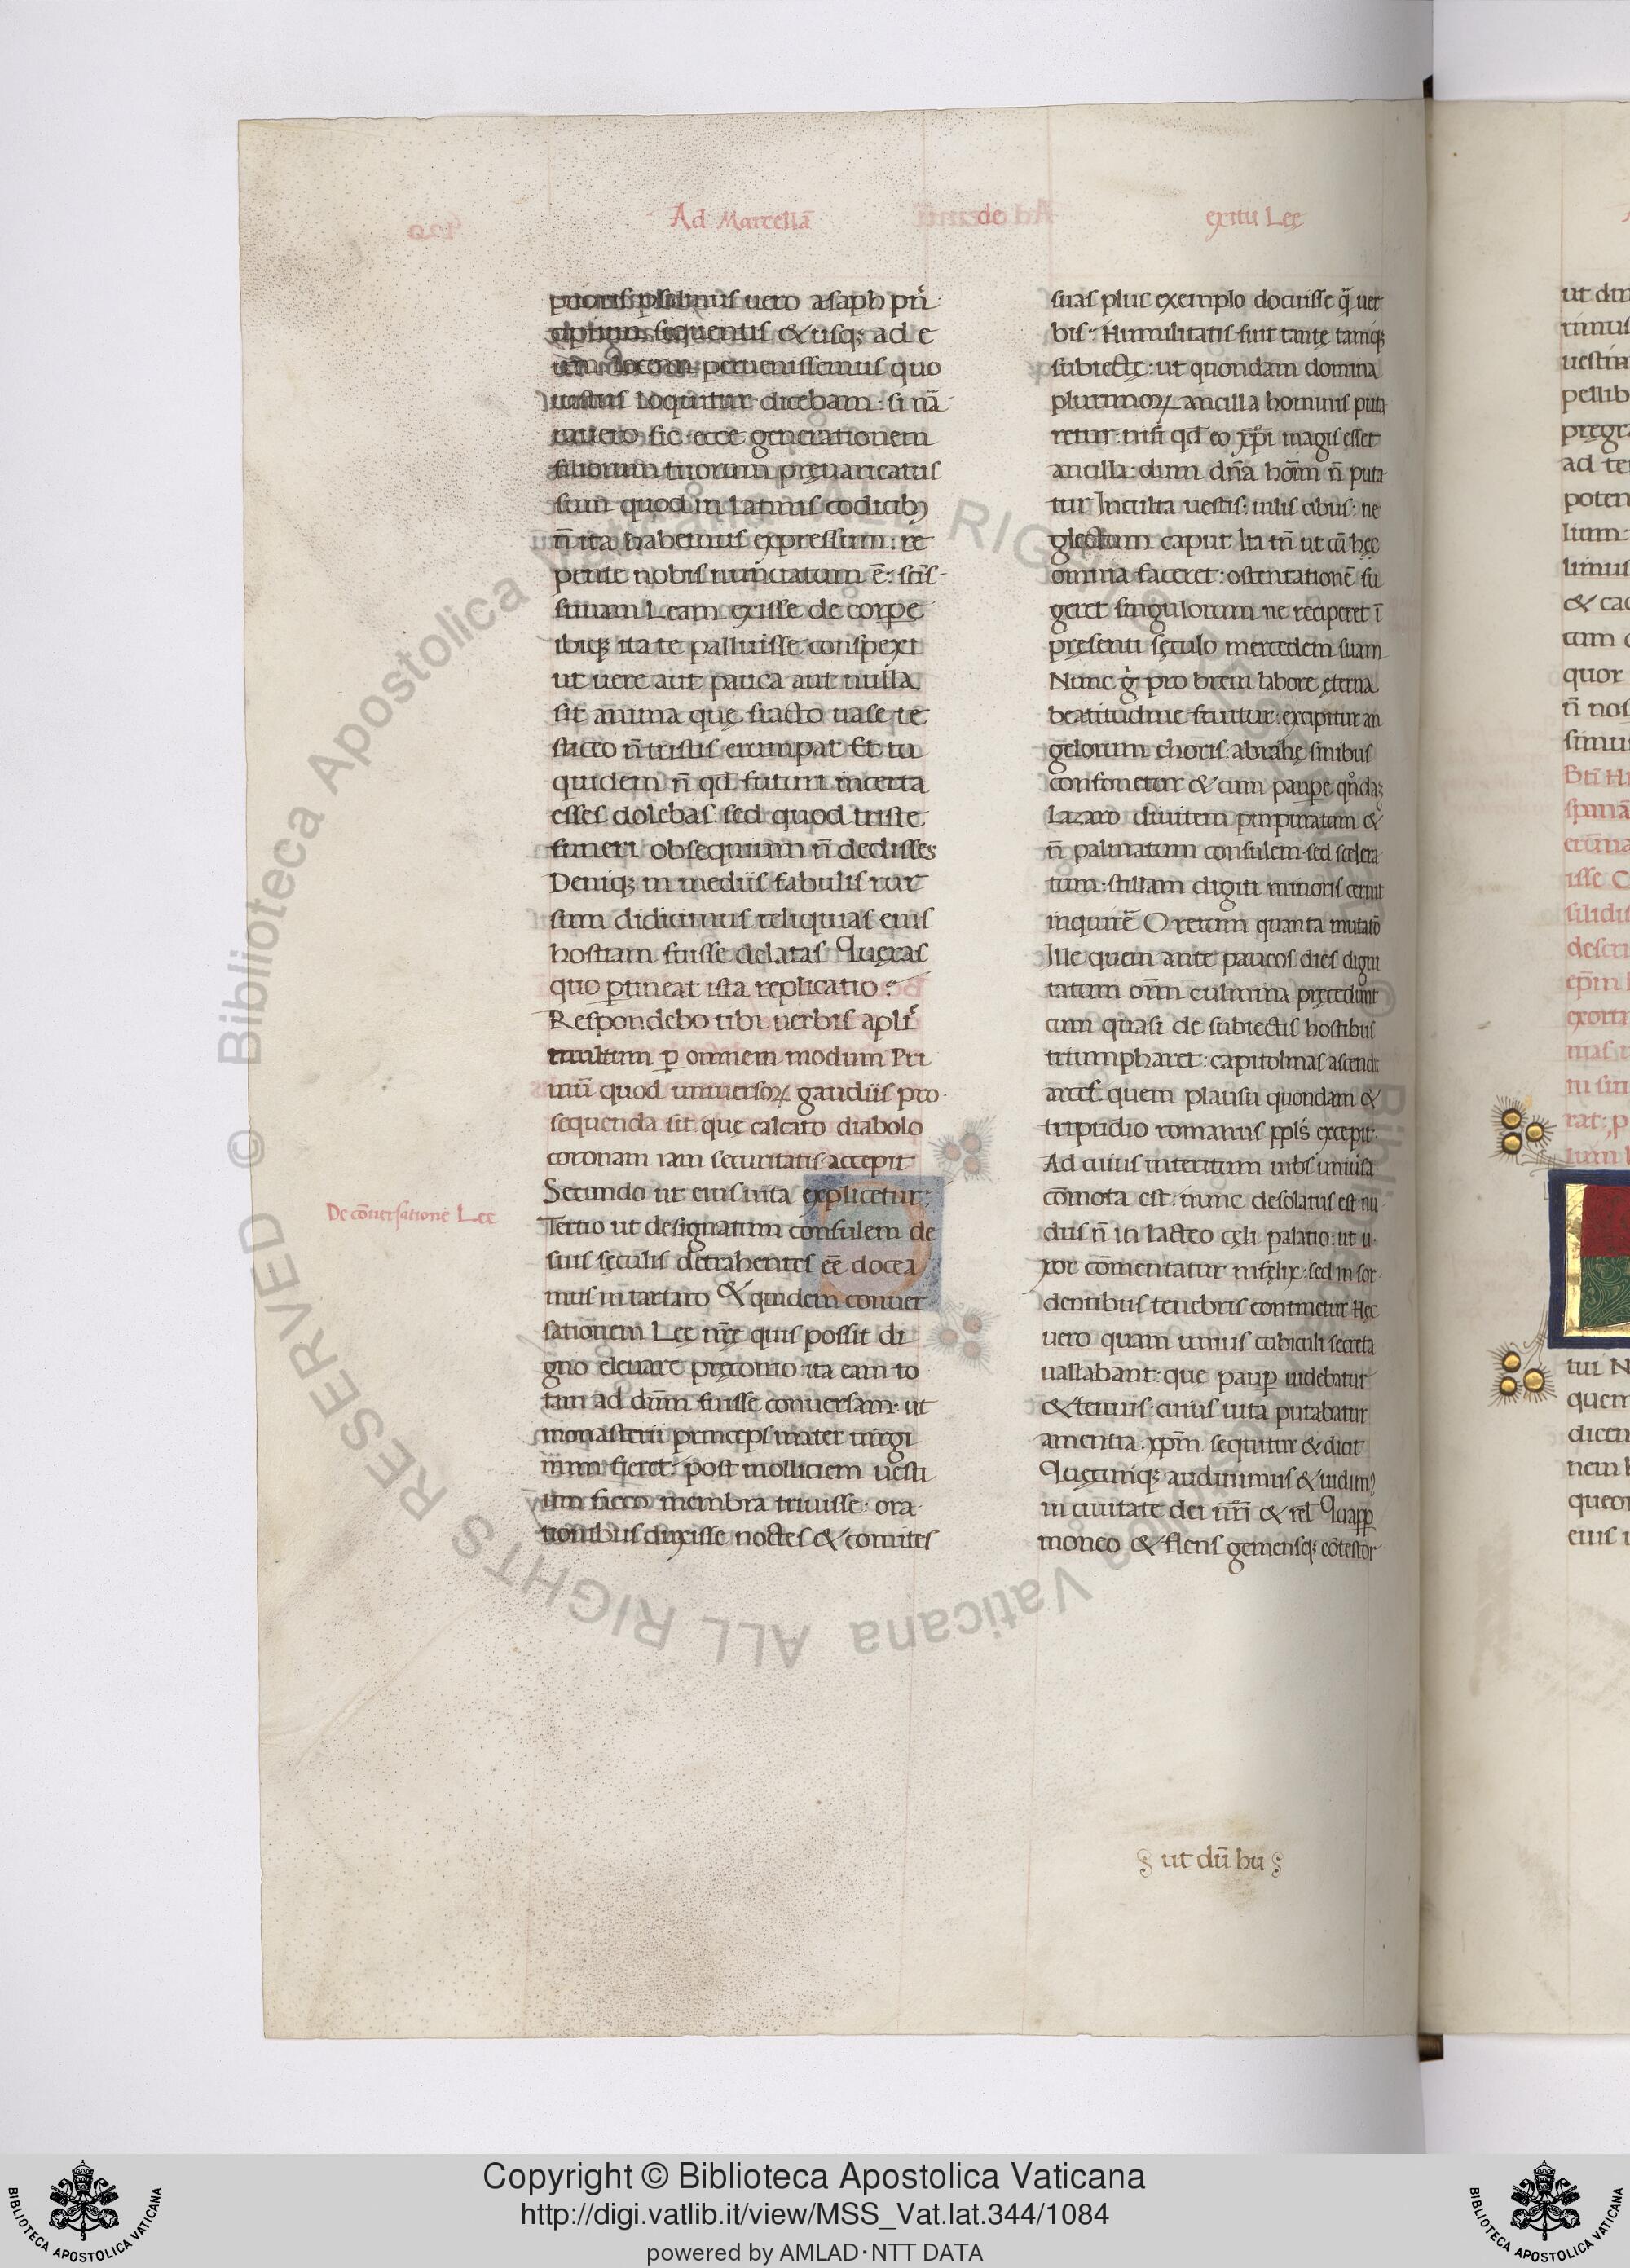 Ad Marcellā de exitu Lee
prioris psalmus uero asaph pn̄
cipium sequentis & usq; ad e
um locum peruenissemus quo
iustus loquitur dicebam : si nā
rauero sic ecce generationem
filiorum tuorum pręuaricatus
sum quod in latinis codicib;
n̄ ita habemus expressum : re
pente nobis nunciatum ē : scīs
simam Leam exisse de corpe
ibiq; ita te palluisse conspexi
ut uere aut pauca aut nulla
sit anima que fracto uase te
staceo n̄ tristis erumpat Et tu
quidem n̄ qd futuri incerta
esses dolebas sed quod triste
funeri obsequium n̄ dedisses
Deniq; in mediis fabulis rur
sum didicimus reliquias eius
hostiam fuisse delatas Quęras
quo ptineat ista replicatio ?
Respondebo tibi uerbis apli
multum p omnem modum Pri
mū quod uniuersoꝝ gaudiis pro
sequenda sit quę calcato diabolo
coronam iam securitatis accepit
Secundo ut eius uita explicetur :
Tertio ut designatum consulem de
suis sęculis detrahentes eē docea
mus in tartaro & quidem conuer
sationem Leę nrę quis possit di
gno eleuare pręconio ita eam to
tam ad dnm̄ fuisse conuersam ut
monasterii princeps mater uirgi
num fieret : post molliciem uesti
um sacco membra triuisse : ora
tionibus duxisse noctes & comites
De cōuersatione Lee
suas plus exemplo docuisse q̄ uer
bis : Humilitatis fuit tantę tamq;
subiectę : ut quondam domina
plurimoꝝ ancilla hominis puta
retur : nisi qd eo xp̄i magis esset
ancilla : dum dn̄a hom̄ n̄ puta
tur Inculta uestis : uilis cibus : ne
glectum caput Ita tn̄ ut cū hęc
omnia faceret : ostentationē fu
geret singulorum ne reciperet ī
pręsenti sęculo mercedem suam
Nunc g̊ pro breui labore ęterna
beatitudine fruitur : excipitur an
gelorum choris : abrahę sinibus
confouetur & cum paupe qn̊da;
Lazaro diuitem purpuratum &
n̄ palmatum consulem sed scelera
tum : stillam digiti minoris cernit
inquirē O rerum quanta mutatō
Ille quem ante paucos dies digni
tatum om̄m culmina pręcedunt
cum quasi de subiectis hostibus
triumpharet : capitolinas ascendit
arces quem plausu quondam &
tripudio romanus ppls̄ excepit
Ad cuius interitum urbs uniuisa
cōmota est : nunc desolatus est nu
dus n̄ in lacteo cęli palatio : ut u
xor cōmentatur infęlix : sed in sor
dentibus tenebris continetur Hęc
uero quam unius cubiculi secreta
uallabant : que paup uidebatur
& tenuis : cuius uita putabatur
amentia . xpm̄ sequitur & dicit
Quęcunq; audiuimus & uidim;
in ciuitate dei nrī & rel̄ Quapp
moneo & flens gemensq; cōtestor
ut dū hu
Copyright © Biblioteca Apostolica Vaticana
http://digi.vatlib.it/view/MSS_Vat.lat.344/1084
powered by AMLAD·NTT DATA